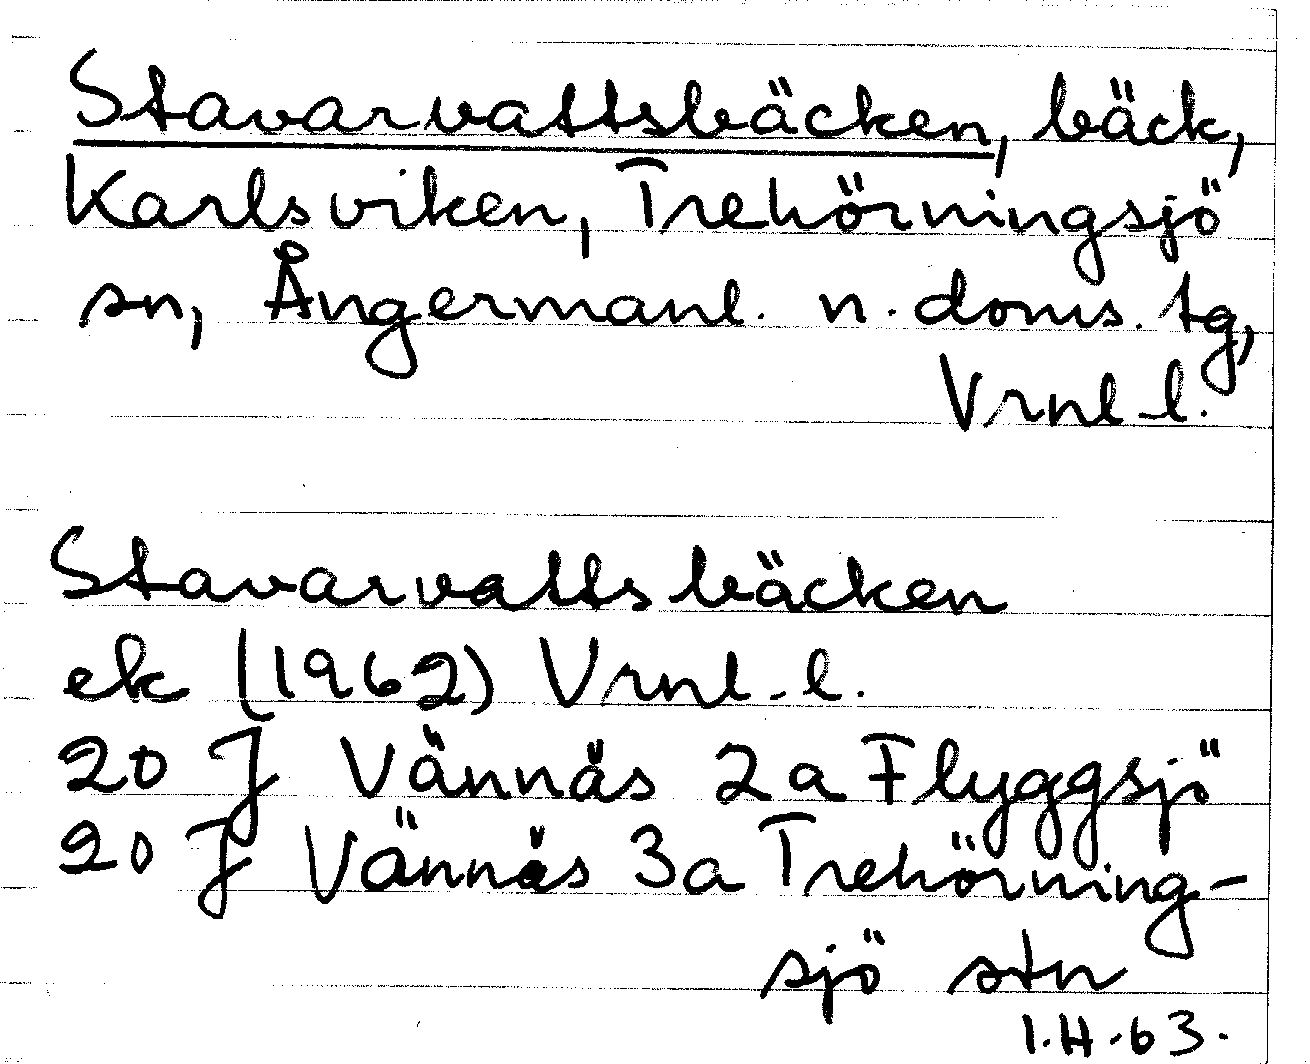 Stavarvattsbäcken, bäck,
Karlsviken, Trehörningsjö
sn, Ångermanl. n. doms. tg,
Vrnl l.
Stavarvattsbäcken
ek (1962) Vrnl. l.
20 J Vännäs 2a Flyggsjö
20 J Vännäs 3a Trehörning-
sjö stn
I.H.63.